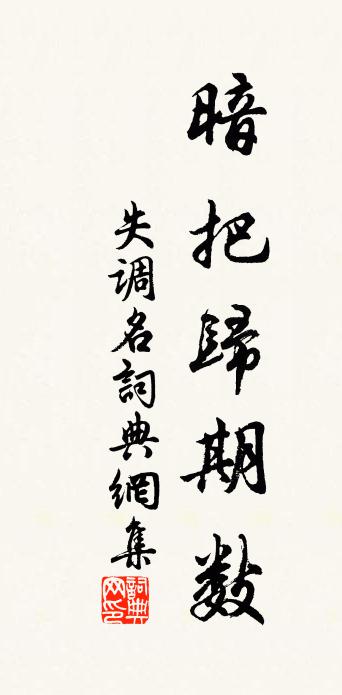 暗把歸期數
失調名詞典網集
詞典網印